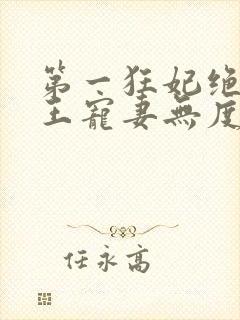 第一狂妃绝
王寵妻無度
任永高